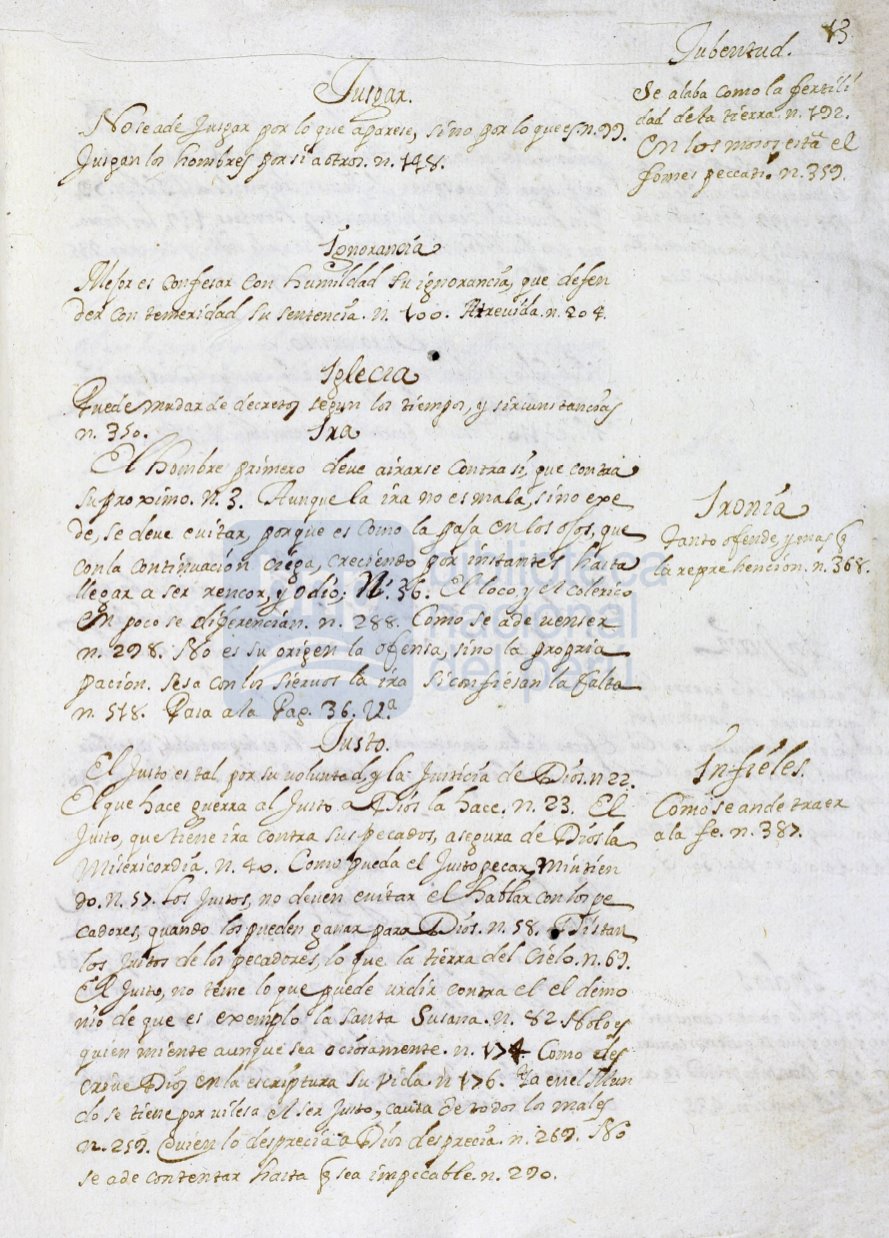 13
Jusgar.
No se a de Jusgar por lo que aparese, sino por lo que es. n. 99.
Jusgan los hombres por si a otros. n. 148.
Ignorancia
Mejor es confesar con humildad su ignorancia, que defen
der con temeridad su sentencia. n. 100. Atrevida. n. 204.
Iglecia
Puede mudar de decretos segun los tiempos, y sircunstancias
n. 350.
Ira
El hombre primero deve airarse contra si, que contra
su proximo. n. 3. Aunque la ira no es mala, sino exe
de, se deve evitar, porque es como la paja en los ojos, que
con la continuacion ciega, creciendo por instantes hasta
llegar a ser rencor, y odio; N. 36. El loco, y el colerico
en poco se diferencian. n. 288. Como se a de venser
n. 298. No es su origen la ofensa, sino la propria
pacion. Sesa con los siervos la ira si confiesan la falta
n. 518. Pasa a la Pag. 36. V.a
Justo.
El Justo es tal por su voluntad, y la Justicia de Dios. n 22.
El que hace guerra al Justo a Dios la hace. n. 23. El
Justo, que tiene ira contra sus pecados, asegura de Dios la
Misericordia. n. 40. Como pueda el Justo pecar, Mintien
do. n. 57. Los Justos, no deven evitar el hablar con los pe
cadores, quando los pueden ganar para Dios. n. 58. Distan
los Justos de los pecadores, lo que la tierra del Cielo. n. 69.
El Justo, no teme lo que puede urdir contra el el demo
nio de que es exemplo la Santa Susana. n. 82. No lo es
quien miente aunque sea ociosamente. n. 174. Como
crive Dios en la escriptura su vida. n 176. Ya en el Mun
do se tiene por vilesa el ser Justo, causa de todos los males
n. 259. Quien lo desprecia a Dios desprecia. n. 269. No
se a de contentar hasta q sea impecable. n. 290.
Jubentud.
Se alaba como la fertili
dad de la tierra. n. 192.
En los mosos està el
fomes peccati. n. 359.
Ironia
Tanto ofende, y mas q
la reprehencion. n. 368.
Infieles.
Como se an de traer
a la fe. n. 387.
biblioteca
nacional
del perú